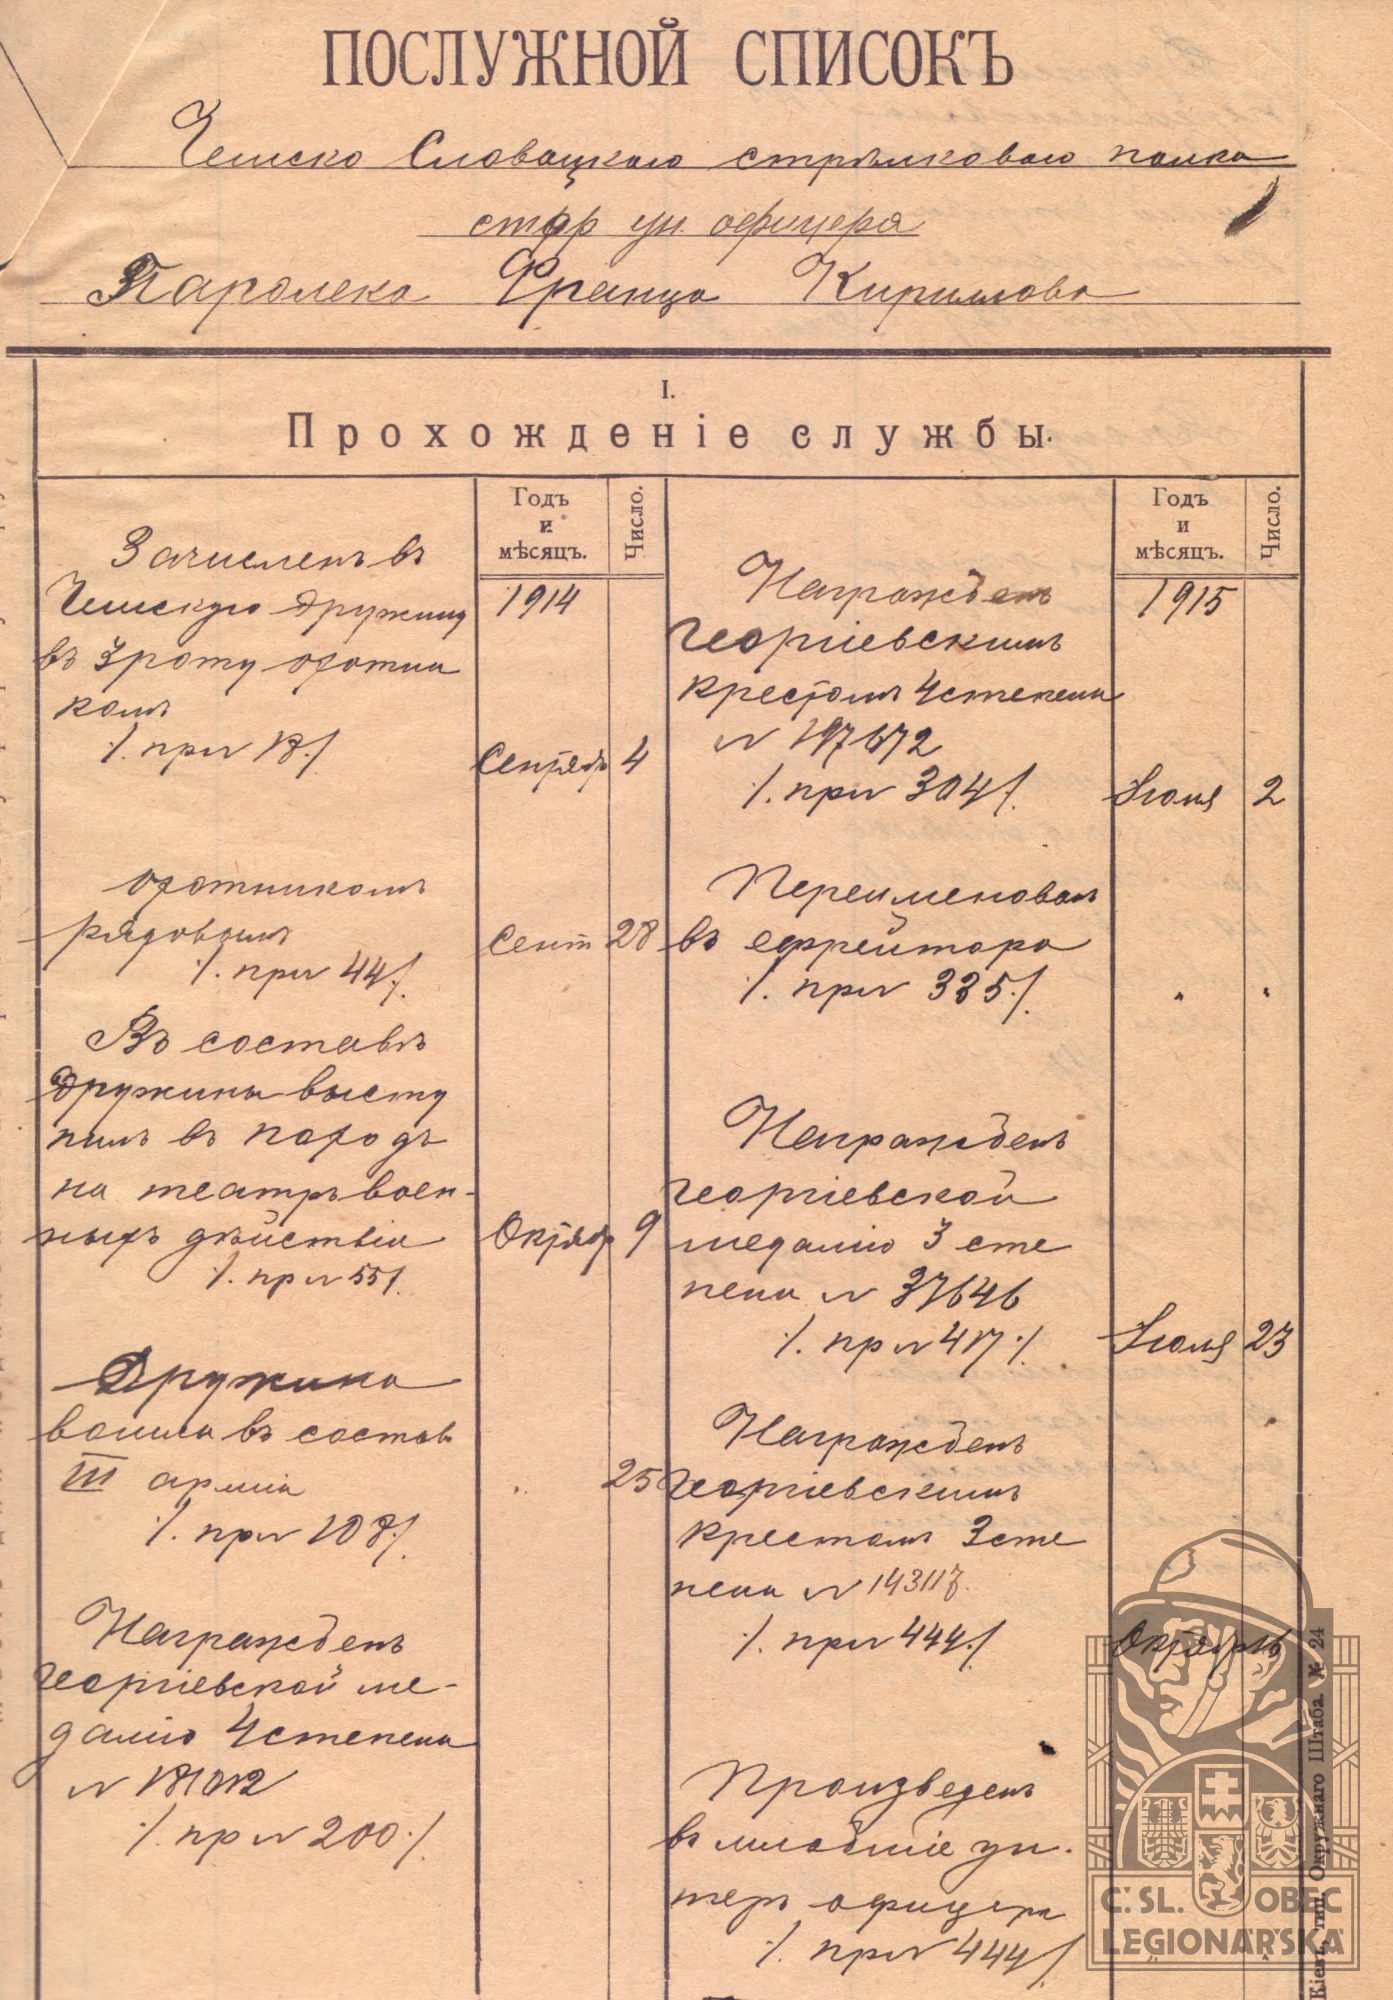 ПОСЛУЖНОЙ СПИСОКЪ
Чешско Словацкаго стрѣлковаго полка
ун. офицера
Франца Кириллова
I.
Прохожденіе службы.
Годъ
и
мѣсяцъ.
Число.
Зачисленъ въ
Чешскую дружину
въ 3 роту охотни
комъ
1914
/. пр № 18./
Сентябр 4
охотникомъ
рядовымъ
Сент 28
/. пр № 44./
Въ составѣ
дружины высту
пилъ въ походъ
на театръ воен-
ныхъ дѣйствій
Октябр 9
/. пр № 55/.
Дружина
вошла въ состав
III арміи
25
/. пр № 108/.
Награжденъ
Георгіевской ме-
далію 4 степени
№ 181012
/. пр № 200./
Годъ
и
мѣсяцъ.
Число.
Награжденъ
1915
Георгіевскимъ
крестомъ 4 степени
№ 197672
/. пр № 304/.
Іюля 2
Переименованъ
въ ефрейтора
/. пр № 335./
" "
Награжденъ
Георгіевской
медалію 3 сте
пени № 37646
/. пр № 417./
Іюля 23
Награжденъ
Георгіевскимъ
крестомъ 3 сте
пени № 143117.
/. пр № 444./
Октябрь
Произведенъ
въ младшіе ун.
теръ офицеры
/. пр № 444/
Кіевъ, тип. Окружнаго Штаба. № 24
Č.SL. OBEC
LEGIONÁŘSKÁ